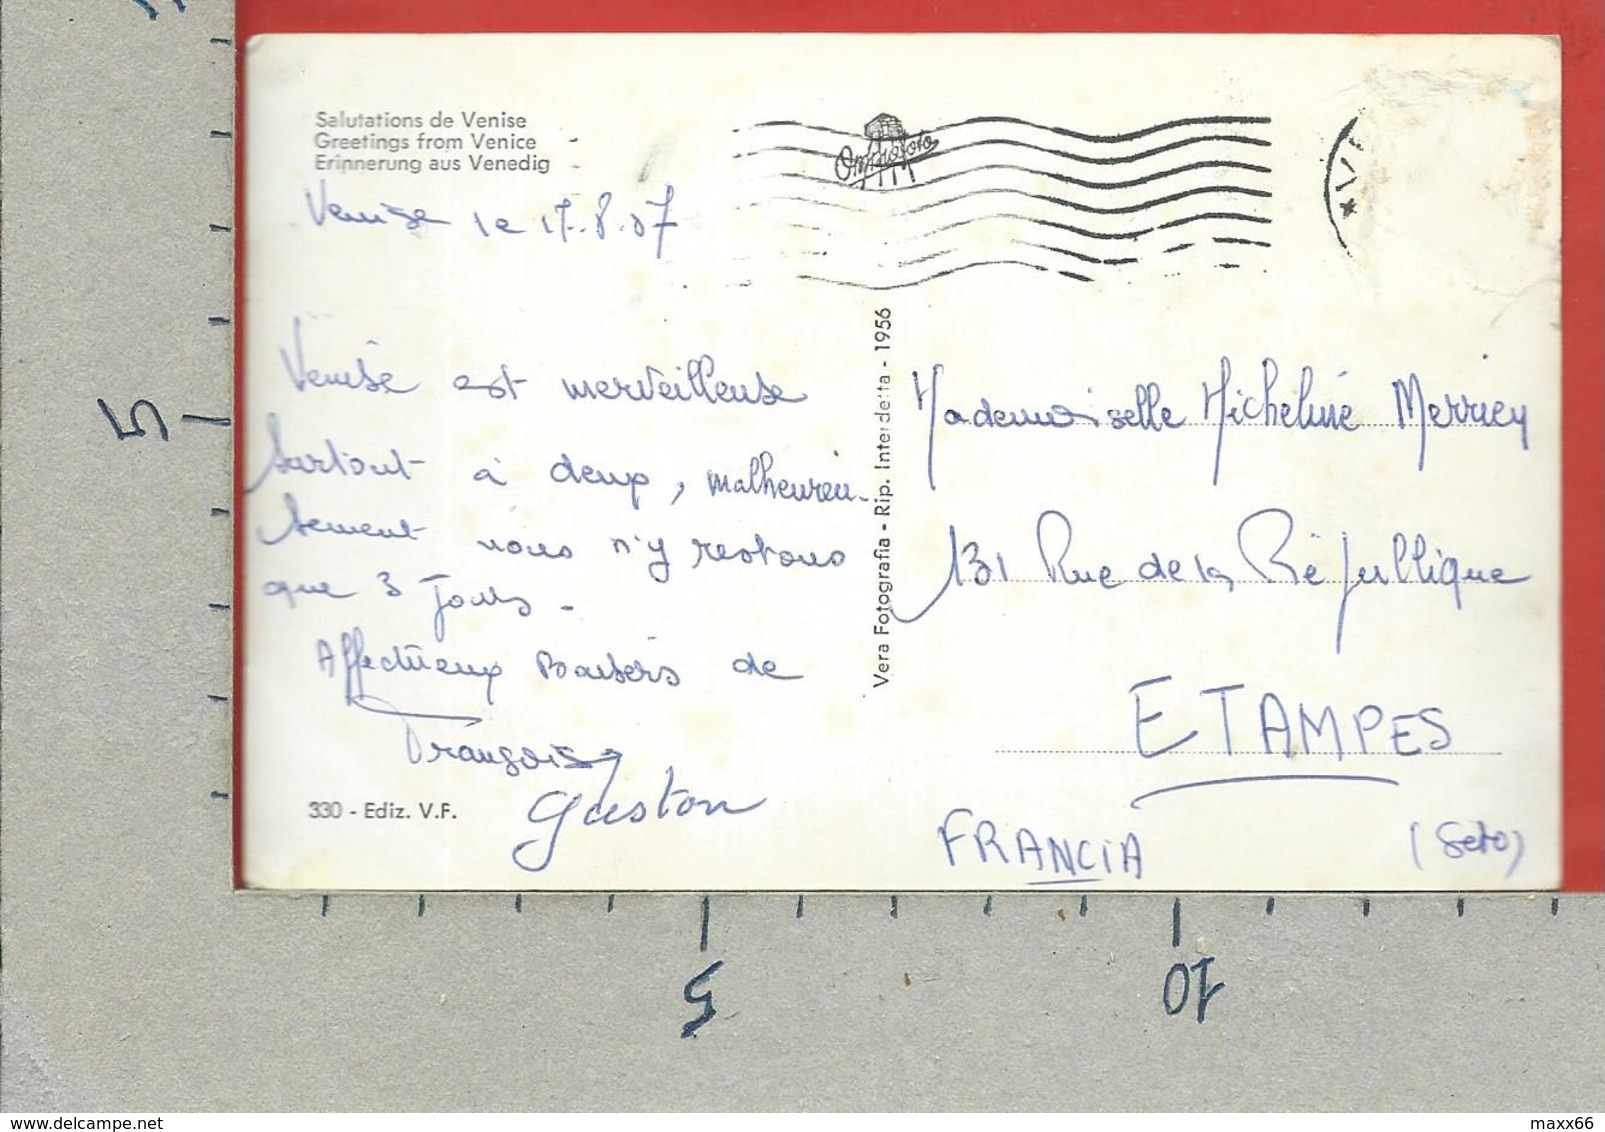 Salutations de Venise
Greetings from Venice
Erinnerung aus Venedig
Venise le 17.8.57
Venise est merveilleuse
surtout à deux, malheureu-
sement nous n'y restons
que 3 jours.
Affectueux Baisers de
Françoise
Gaston
330 - Ediz. V.F.
Vera Fotografia - Rip. Interdetta - 1956
Mademoiselle Micheline
131 Rue de la République
ETAMPES
(Seto)
FRANCIA
5
5
10
delcampe.net
maxx66